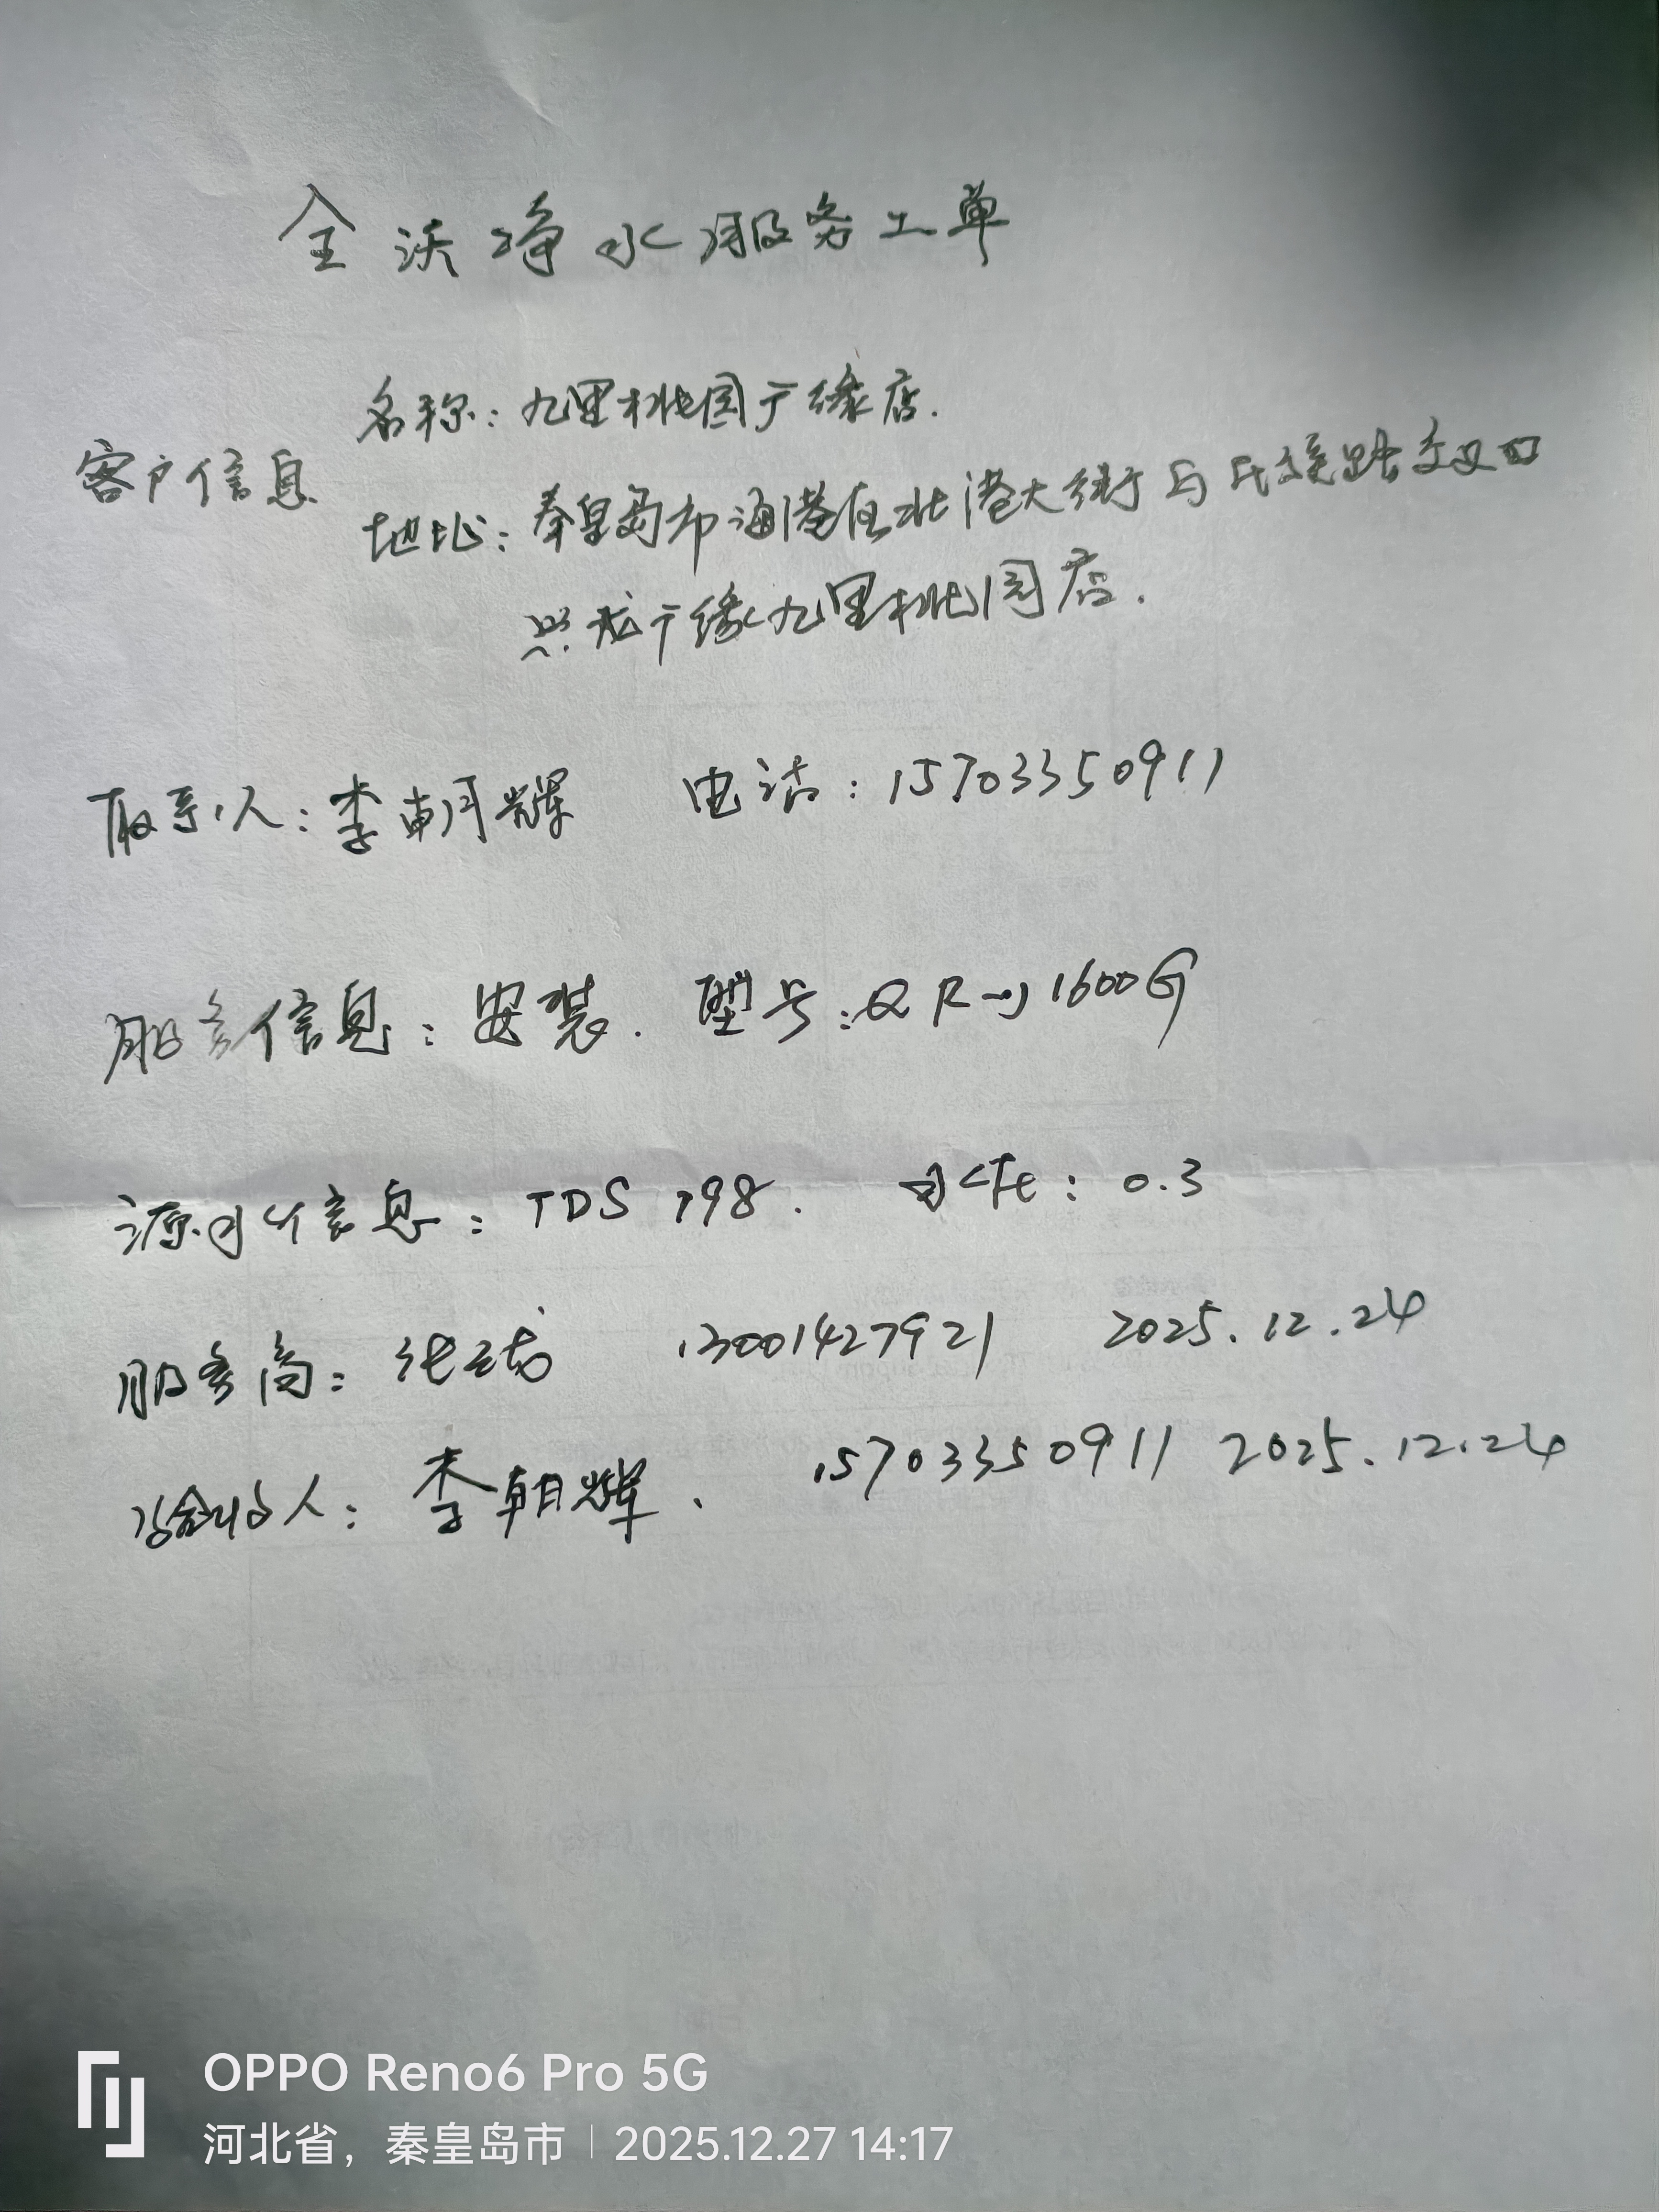 全沃净水服务工单
名称：九里桃园广缘店.
客户信息
地址：秦皇岛市海港区北港大街与民族路交叉口
兴龙广缘九里桃园店.
联系人：李朝辉 电话：15703350911
服务信息：安装. 型号：QR-J1600G
源水信息：TDS 798. 余氯：0.3
服务商：张云龙 13001427921 2025.12.24
验收人：李朝辉. 15703350911 2025.12.24
OPPO Reno6 Pro 5G
河北省，秦皇岛市 | 2025.12.27 14:17